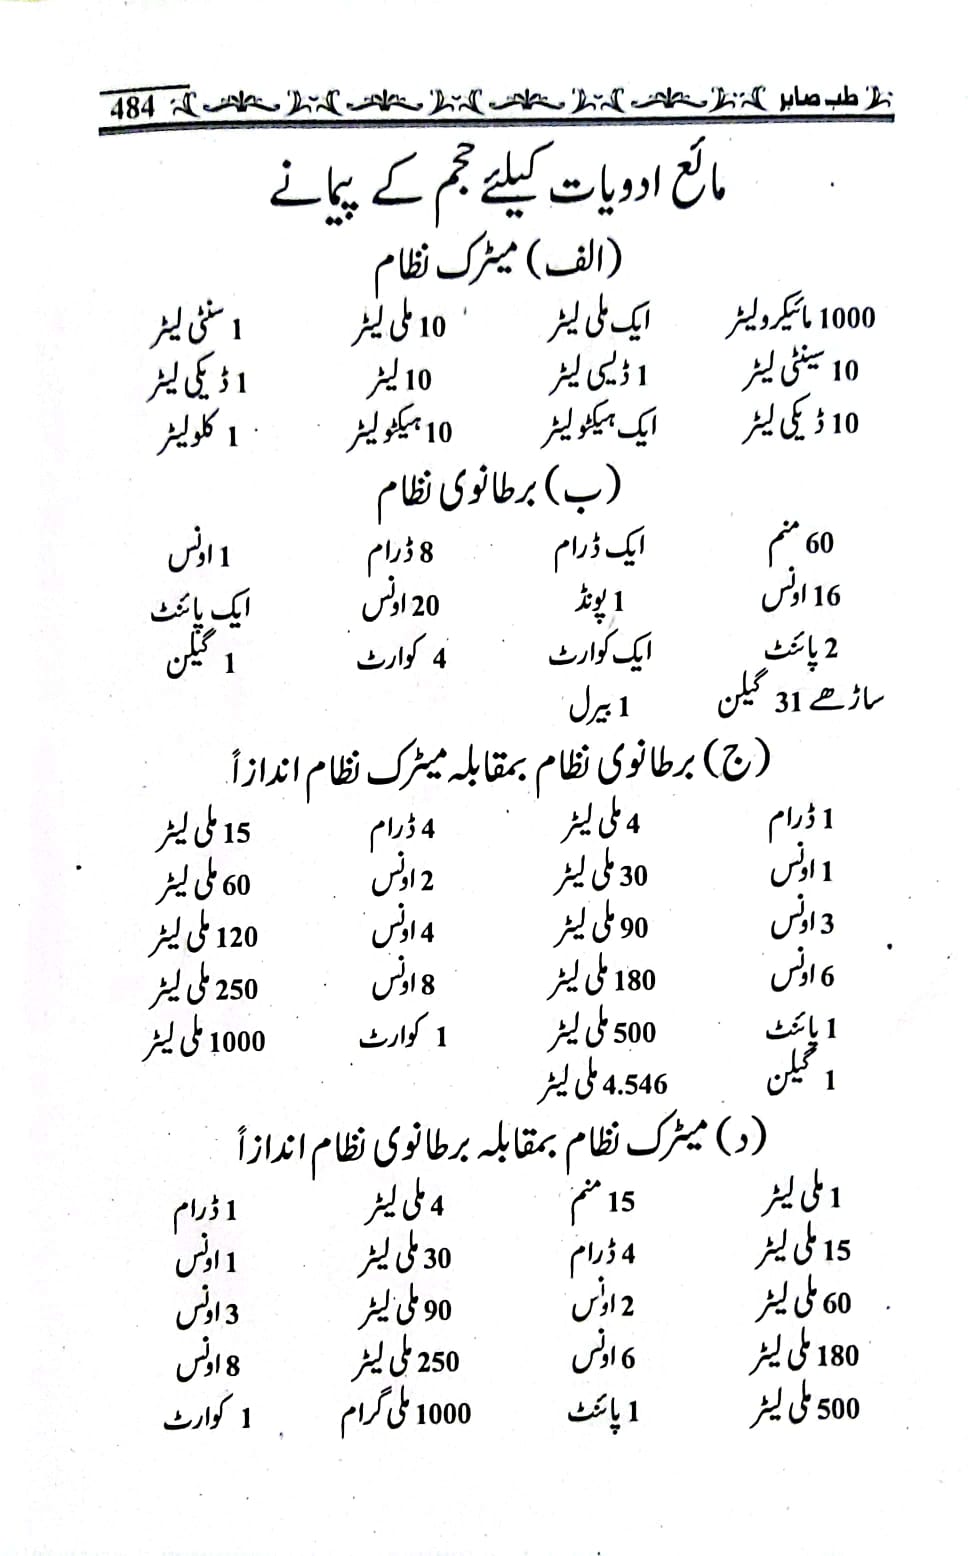 طب صابر 484
مائع ادویات کیلئے حجم کے پیمانے
(الف) میٹرک نظام
1000 مائیکرولیٹر ایک ملی لیٹر 10 ملی لیٹر 1 سنٹی لیٹر
10 سینٹی لیٹر 1 ڈیسی لیٹر 10 لیٹر 1 ڈیکی لیٹر
10 ڈیکی لیٹر ایک ہیکٹولیٹر 10 ہیکٹولیٹر 1 کلولیٹر
(ب) برطانوی نظام
60 منم ایک ڈرام 8 ڈرام 1 اونس
16 اونس 1 پونڈ 20 اونس ایک پائنٹ
2 پائنٹ ایک کوارٹ 4 کوارٹ 1 گیلن
ساڑھے 31 گیلن 1 بیرل
(ج) برطانوی نظام بمقابلہ میٹرک نظام اندازاً
1 ڈرام 4 ملی لیٹر 4 ڈرام 15 ملی لیٹر
1 اونس 30 ملی لیٹر 2 اونس 60 ملی لیٹر
3 اونس 90 ملی لیٹر 4 اونس 120 ملی لیٹر
6 اونس 180 ملی لیٹر 8 اونس 250 ملی لیٹر
1 پائنٹ 500 ملی لیٹر 1 کوارٹ 1000 ملی لیٹر
1 گیلن 4.546 ملی لیٹر
(د) میٹرک نظام بمقابلہ برطانوی نظام اندازاً
1 ملی لیٹر 15 منم 4 ملی لیٹر 1 ڈرام
15 ملی لیٹر 4 ڈرام 30 ملی لیٹر 1 اونس
60 ملی لیٹر 2 اونس 90 ملی لیٹر 3 اونس
180 ملی لیٹر 6 اونس 250 ملی لیٹر 8 اونس
500 ملی لیٹر 1 پائنٹ 1000 ملی گرام 1 کوارٹ